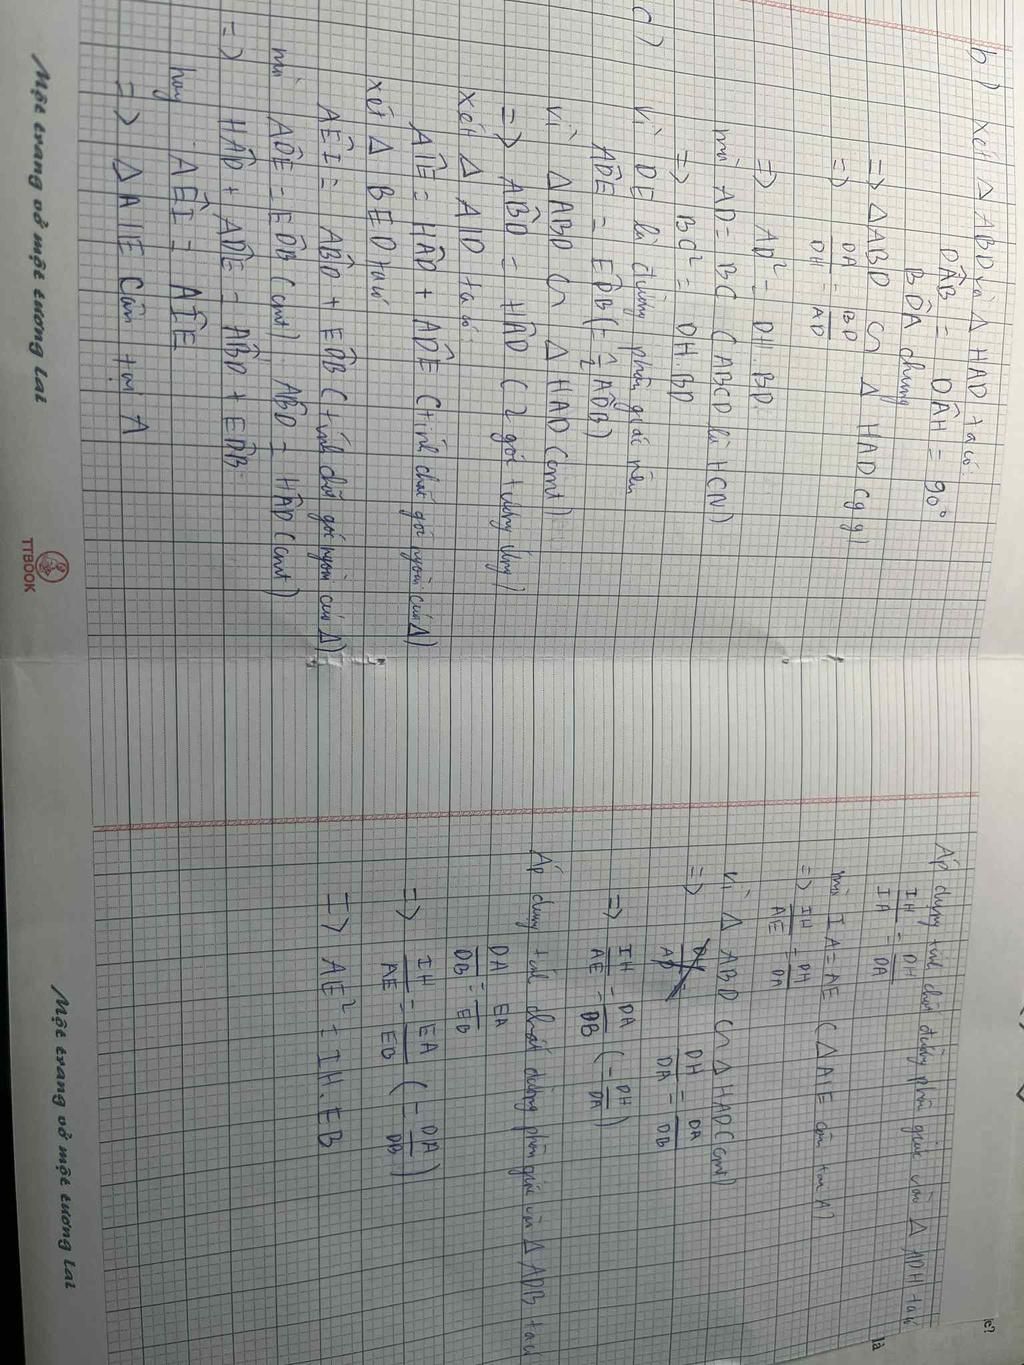 b) Xét Δ ABD và Δ HAD ta có:
DÂB = DÂH = 90°
BD̂A chung
=> ΔABD ∽ Δ HAD (g g)
=> DA/DH = BD/AD
=> AD² = DH. BD.
mà AD = BC (ABCD là HCN)
=> BC² = DH. BD
c) Vì DE là đường phân giác nên
AD̂E = ED̂B (= 1/2 AD̂B)
Vì Δ ABD ∽ Δ HAD (cmt)
=> AB̂D = HÂD (2 góc tương ứng)
Xét Δ AID ta có:
AÎE = HÂD + AD̂E (tính chất góc ngoài của Δ)
Xét Δ BED ta có
AÊI = AB̂D + ED̂B (tính chất góc ngoài của Δ)
mà AD̂E = ED̂B (cmt). AB̂D = HÂD (cmt)
=> HÂD + AD̂E = AB̂D + ED̂B.
hay AÊI = AÎE
=> Δ AIE cân tại A
Một trang vở một tương lai
TTBOOK
Áp dụng tính chất đường phân giác vào Δ ADH ta có
IH/IA = DH/DA
mà IA = AE (Δ AIE cân tại A)
=> IH/AE = DH/DA
Vì Δ ABD ∽ Δ HAD (cmt)
=> DH/DA = DA/DB
=> IH/AE = DA/DB (= DH/DA)
Áp dụng tính chất đường phân giác vào Δ ADB ta có
DA/DB = EA/EB
=> IH/AE = EA/EB (= DA/DB)
=> AE² = IH. EB
Một trang vở một tương lai
là